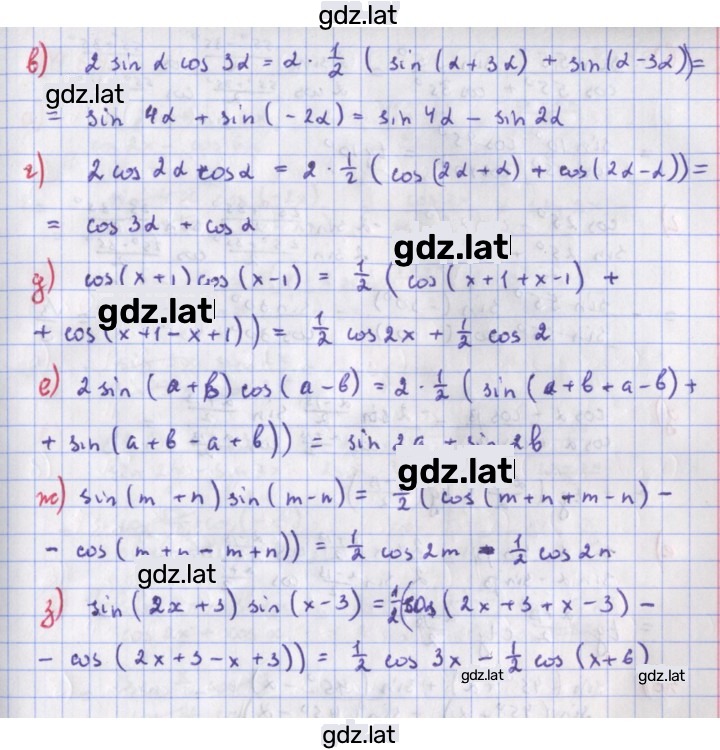 gdz.lat
в) 2 sin α cos 3α = 2 · 1/2 ( sin (α + 3α) + sin (α - 3α)) =
gdz.lat
= sin 4α + sin (- 2α) = sin 4α - sin 2α
г) 2 cos 2α cos α = 2 · 1/2 ( cos (2α + α) + cos (2α - α)) =
= cos 3α + cos α
gdz.lat
д) cos (x + 1) cos (x - 1) = 1/2 ( cos ( x + 1 + x - 1) +
gdz.lat
+ cos (x + 1 - x + 1)) = 1/2 cos 2x + 1/2 cos 2
е) 2 sin (a + b) cos (a - b) = 2 · 1/2 ( sin (a + b + a - b) +
+ sin (a + b - a + b)) = sin 2a + sin 2b
gdz.lat
ж) sin (m + n) sin (m - n) = 1/2 ( cos (m + n + m - n) -
- cos (m + n - m + n)) = 1/2 cos 2m - 1/2 cos 2n
gdz.lat
з) sin (2x + 3) sin (x - 3) = 1/2 (cos (2x + 3 + x - 3) -
- cos (2x + 3 - x + 3)) = 1/2 cos 3x - 1/2 cos (x + 6)
gdz.lat
gdz.lat
gdz.lat